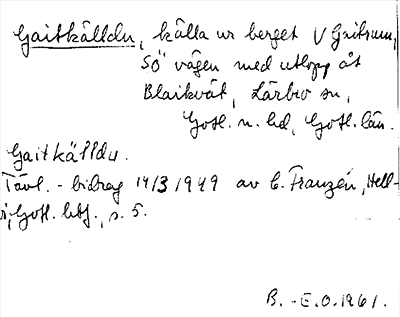 Gaitkälldu, källa ur berget V Gaitrum,
SÖ vägen med utlopp åt
Blaikvät, Lärbro sn,
Gotl. n. hd, Gotl. län.
Gaitkälldu.
Tävl.-bidrag 14/3 1949 av C. Franzén, Hell-
vi, Gotl. htf., s. 5.
B.-E.O. 1961.